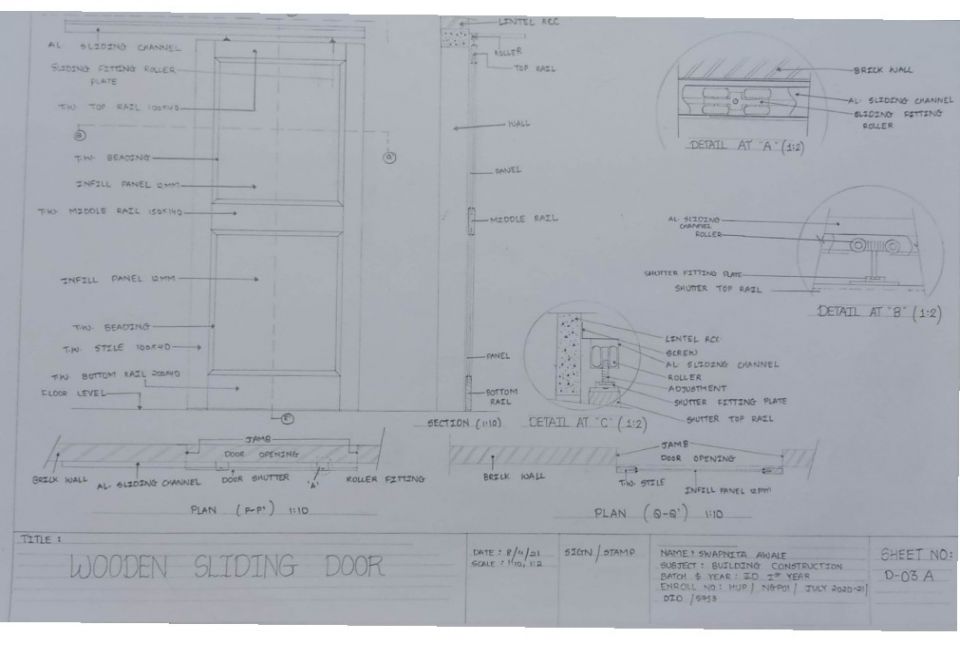 AL. SLIDING CHANNEL
SLIDING FITTING ROLLER
PLATE
T.W. TOP RAIL 100X40
T.W. BEADING
INFILL PANEL 12MM
T.W. MIDDLE RAIL 150X40
INFILL PANEL 12MM
T.W. BEADING
T.W. STILE 100X40
T.W. BOTTOM RAIL 200X40
FLOOR LEVEL
LINTEL RCC
ROLLER
TOP RAIL
WALL
PANEL
MIDDLE RAIL
PANEL
BOTTOM
RAIL
SECTION (1:10)
BRICK WALL
AL. SLIDING CHANNEL
SLIDING FITTING
ROLLER
DETAIL AT "A" (1:2)
AL. SLIDING
CHANNEL
ROLLER
SHUTTER FITTING PLATE
SHUTTER TOP RAIL
DETAIL AT "B" (1:2)
LINTEL RCC
SCREW
AL. SLIDING CHANNEL
ROLLER
ADJUSTMENT
SHUTTER FITTING PLATE
SHUTTER TOP RAIL
DETAIL AT "C" (1:2)
JAMB
DOOR OPENING
BRICK WALL
AL. SLIDING CHANNEL
DOOR SHUTTER
'A'
ROLLER FITTING
PLAN (P-P') 1:10
JAMB
DOOR OPENING
BRICK WALL
T.W. STILE
INFILL PANEL 12MM
PLAN (Q-Q') 1:10
TITLE :
WOODEN SLIDING DOOR
DATE : 8/4/21
SCALE : 1:10, 1:2
SIGN / STAMP
NAME : SWAPNITA AWALE
SUBJECT : BUILDING CONSTRUCTION
BATCH & YEAR : ID 1ST YEAR
ENROLL NO : HUP / NGP01 / JULY 2020-21/
DID /
SHEET NO:
D-03 A